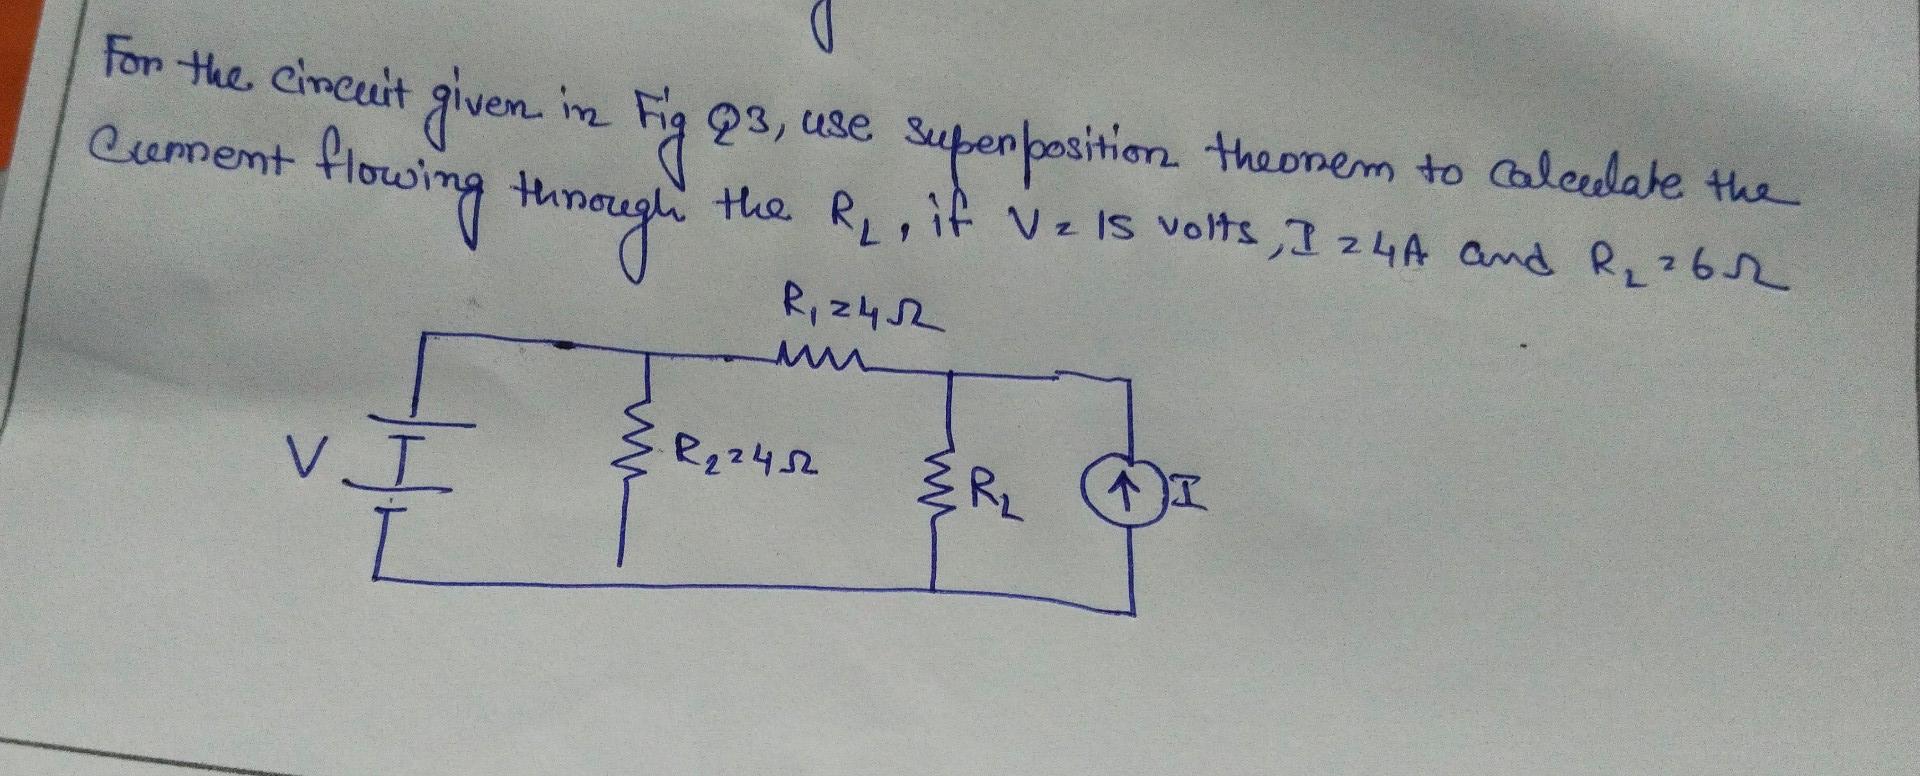 For the circuit given in Fig Q3, use superposition theorem to calculate the
Current flowing through the R_L, if V = 15 volts, I = 4A and R_L = 6Ω
R₁ = 4Ω
V
R₂ = 4Ω
R_L
I